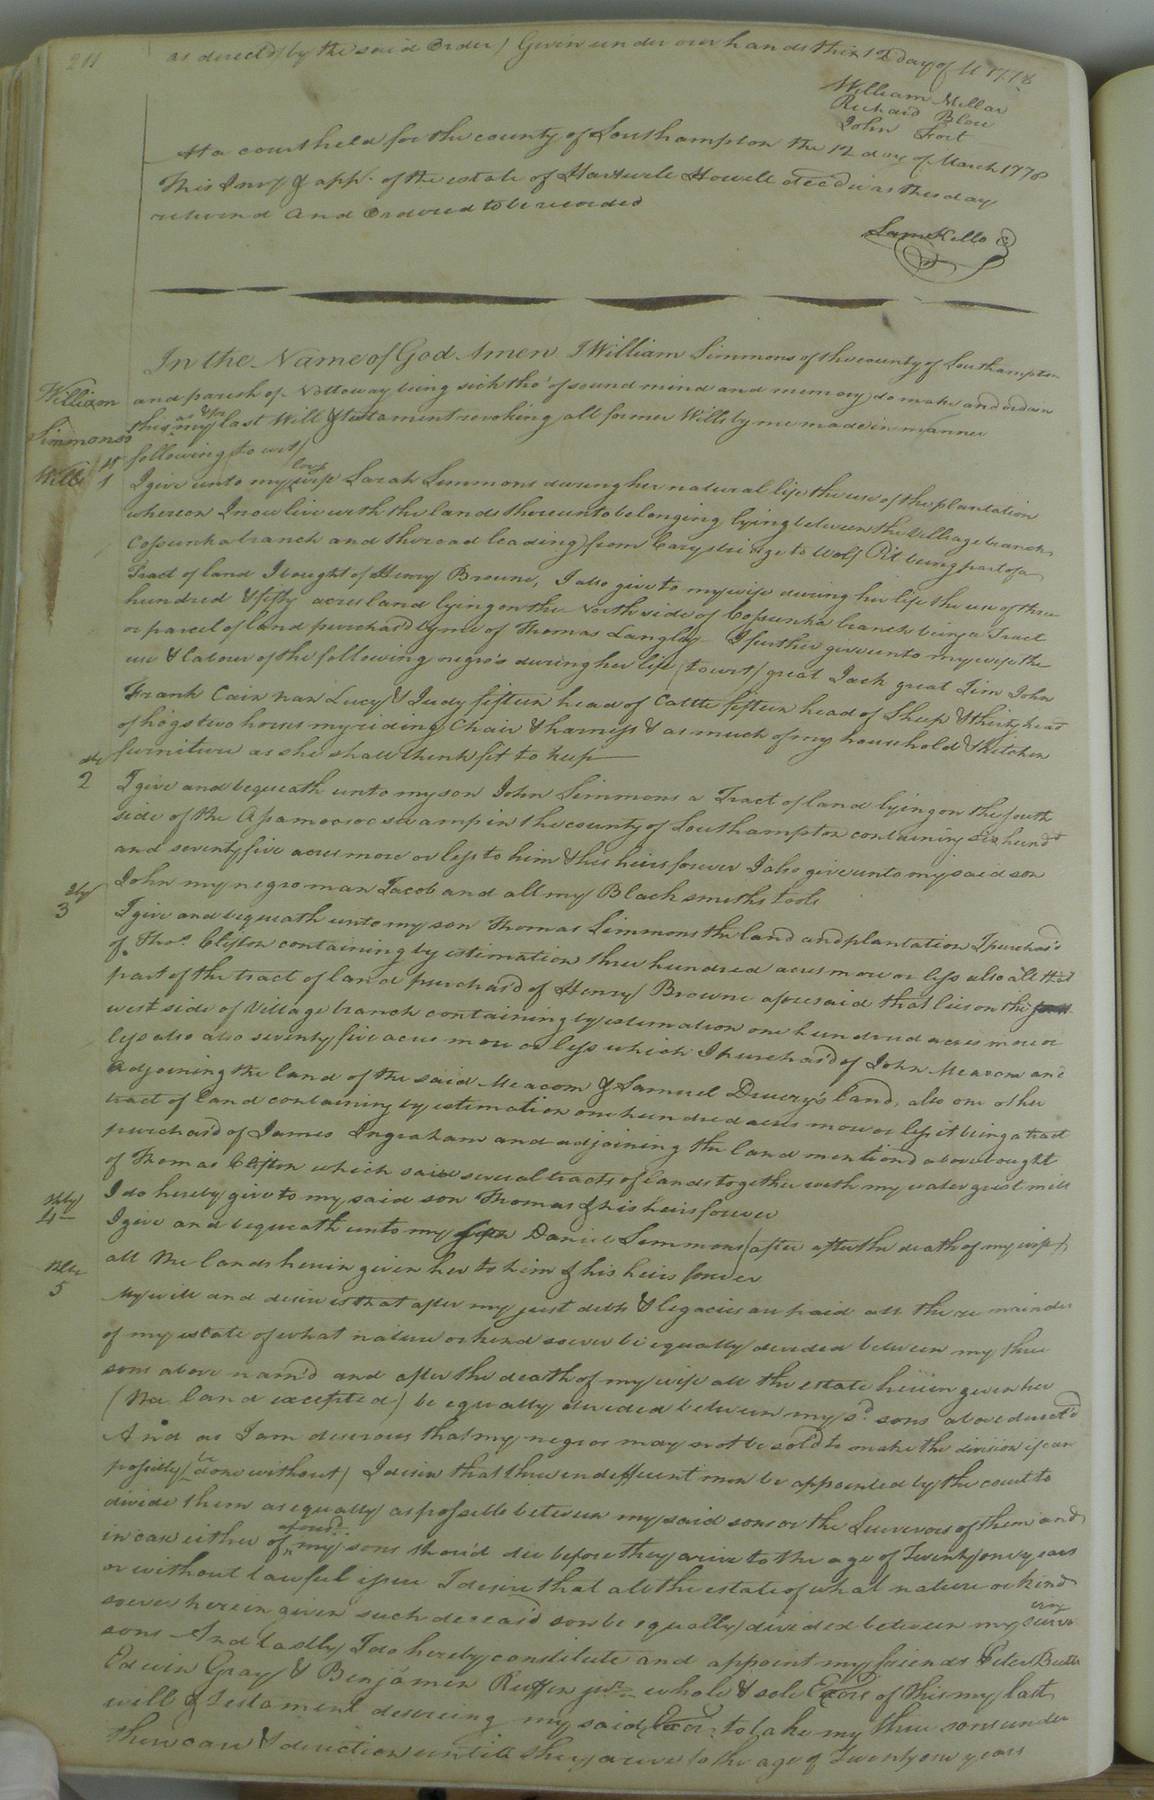 211
as directed by the said Order Given under our hands this 12 day of M 1778
William Millar
Richard Blow
John Fort
At a court held for the county of Southampton the 12 day of March 1778
This Invy & app. of the estate of Hartwell Howell decd was this day
returnd And Ordered to be recorded
Sam Kello C
In the Name of God Amen I William Simmons of the county of Southampton
William
Simmons's
Will
and parish of Nottoway being sick tho' of sound mind and memory do make and ordain
this my last Will & testament revoking all former Wills by me made in manner
following to wit
1st I give unto my love wife Sarah Simmons during her natural life the use of the plantation
whereon I now live with the lands thereunto belonging lying between the Village branch
Cossunka branch and the road leading from Carys bridge to Wolf Pit being part of a
Tract of land I bought of Henry Browne, I also give to my wife during her life the use of three
hundred & fifty acres land lying on the North side of Cossunka branch being a Tract
or parcel of land purchas'd by me of Thomas Langley I further give unto my wife the
use & labour of the following negro's during her life (to wit) great Jack great Jim John
Frank Cain Nan Lucy & Judy fifteen head of Cattle fifteen head of Sheep & thirty head
of hogs two horses my riding Chair & harness & as much of my household & kitchen
furniture as she shall think fit to keep
2 I give and bequeath unto my son John Simmons a Tract of land lying on the South
side of the Apamocsoc swamp in the county of Southampton containing Six hundd
and seventy five acres more or less to him & his heirs forever I also give unto my said son
John my negro man Jacob and all my Black smiths tools
3 I give and bequeath unto my son Thomas Simmons the land and plantation I purchas'd
of Thos. Clifton containing by estimation three hundred acres more or less also all that
part of the tract of land purchas'd of Henry Browne aforesaid that lies on the
west side of Village branch containing by estimation one hundred acres more or
less also also seventy five acres more or less which I purchas'd of John Meacom and
adjoining the land of the said Meacom & Samuel Drury's land, also one other
tract of land containing by estimation one hundred acres more or less it being a tract
purchas'd of James Ingraham and adjoining the land mention'd above bought
of Thomas Clifton which said several tracts of lands together with my water grist mill
I do hereby give to my said son Thomas & his heirs forever
4 I give and bequeath unto my son Daniel Simmons (after after the death of my wife)
all the lands herein given her to him & his heirs forever
5 My will and desire is that after my just debts & legacies are paid all the remainder
of my estate of what nature or kind soever be equally devided between my three
sons above nam'd and after the death of my wife all the estate herein given her
(the land excepted) be equally devided between my sd. sons above direct'd
And as I am desirous that my negroes may not be sold to make the division if can
possibly be done without I desire that three indifferent men be appointed by the court to
divide them as equally as possible between my said sons or the Survivors of them and
in case either of my aforesd. sons shou'd die before they arive to the age of Twenty one years
or without lawful issue I desire that all the estate of what nature or kind
soever herein given such deceas'd son be equally devided between my surviving
sons And lastly I do hereby constitute and appoint my friends Peter Butts
Edwin Gray & Benjamin Ruffin junr. whole & sole Exors of this my last
will & Testament desireing my said Exors to take my three sons under
their care & direction untill they arive to the age of Twenty one years